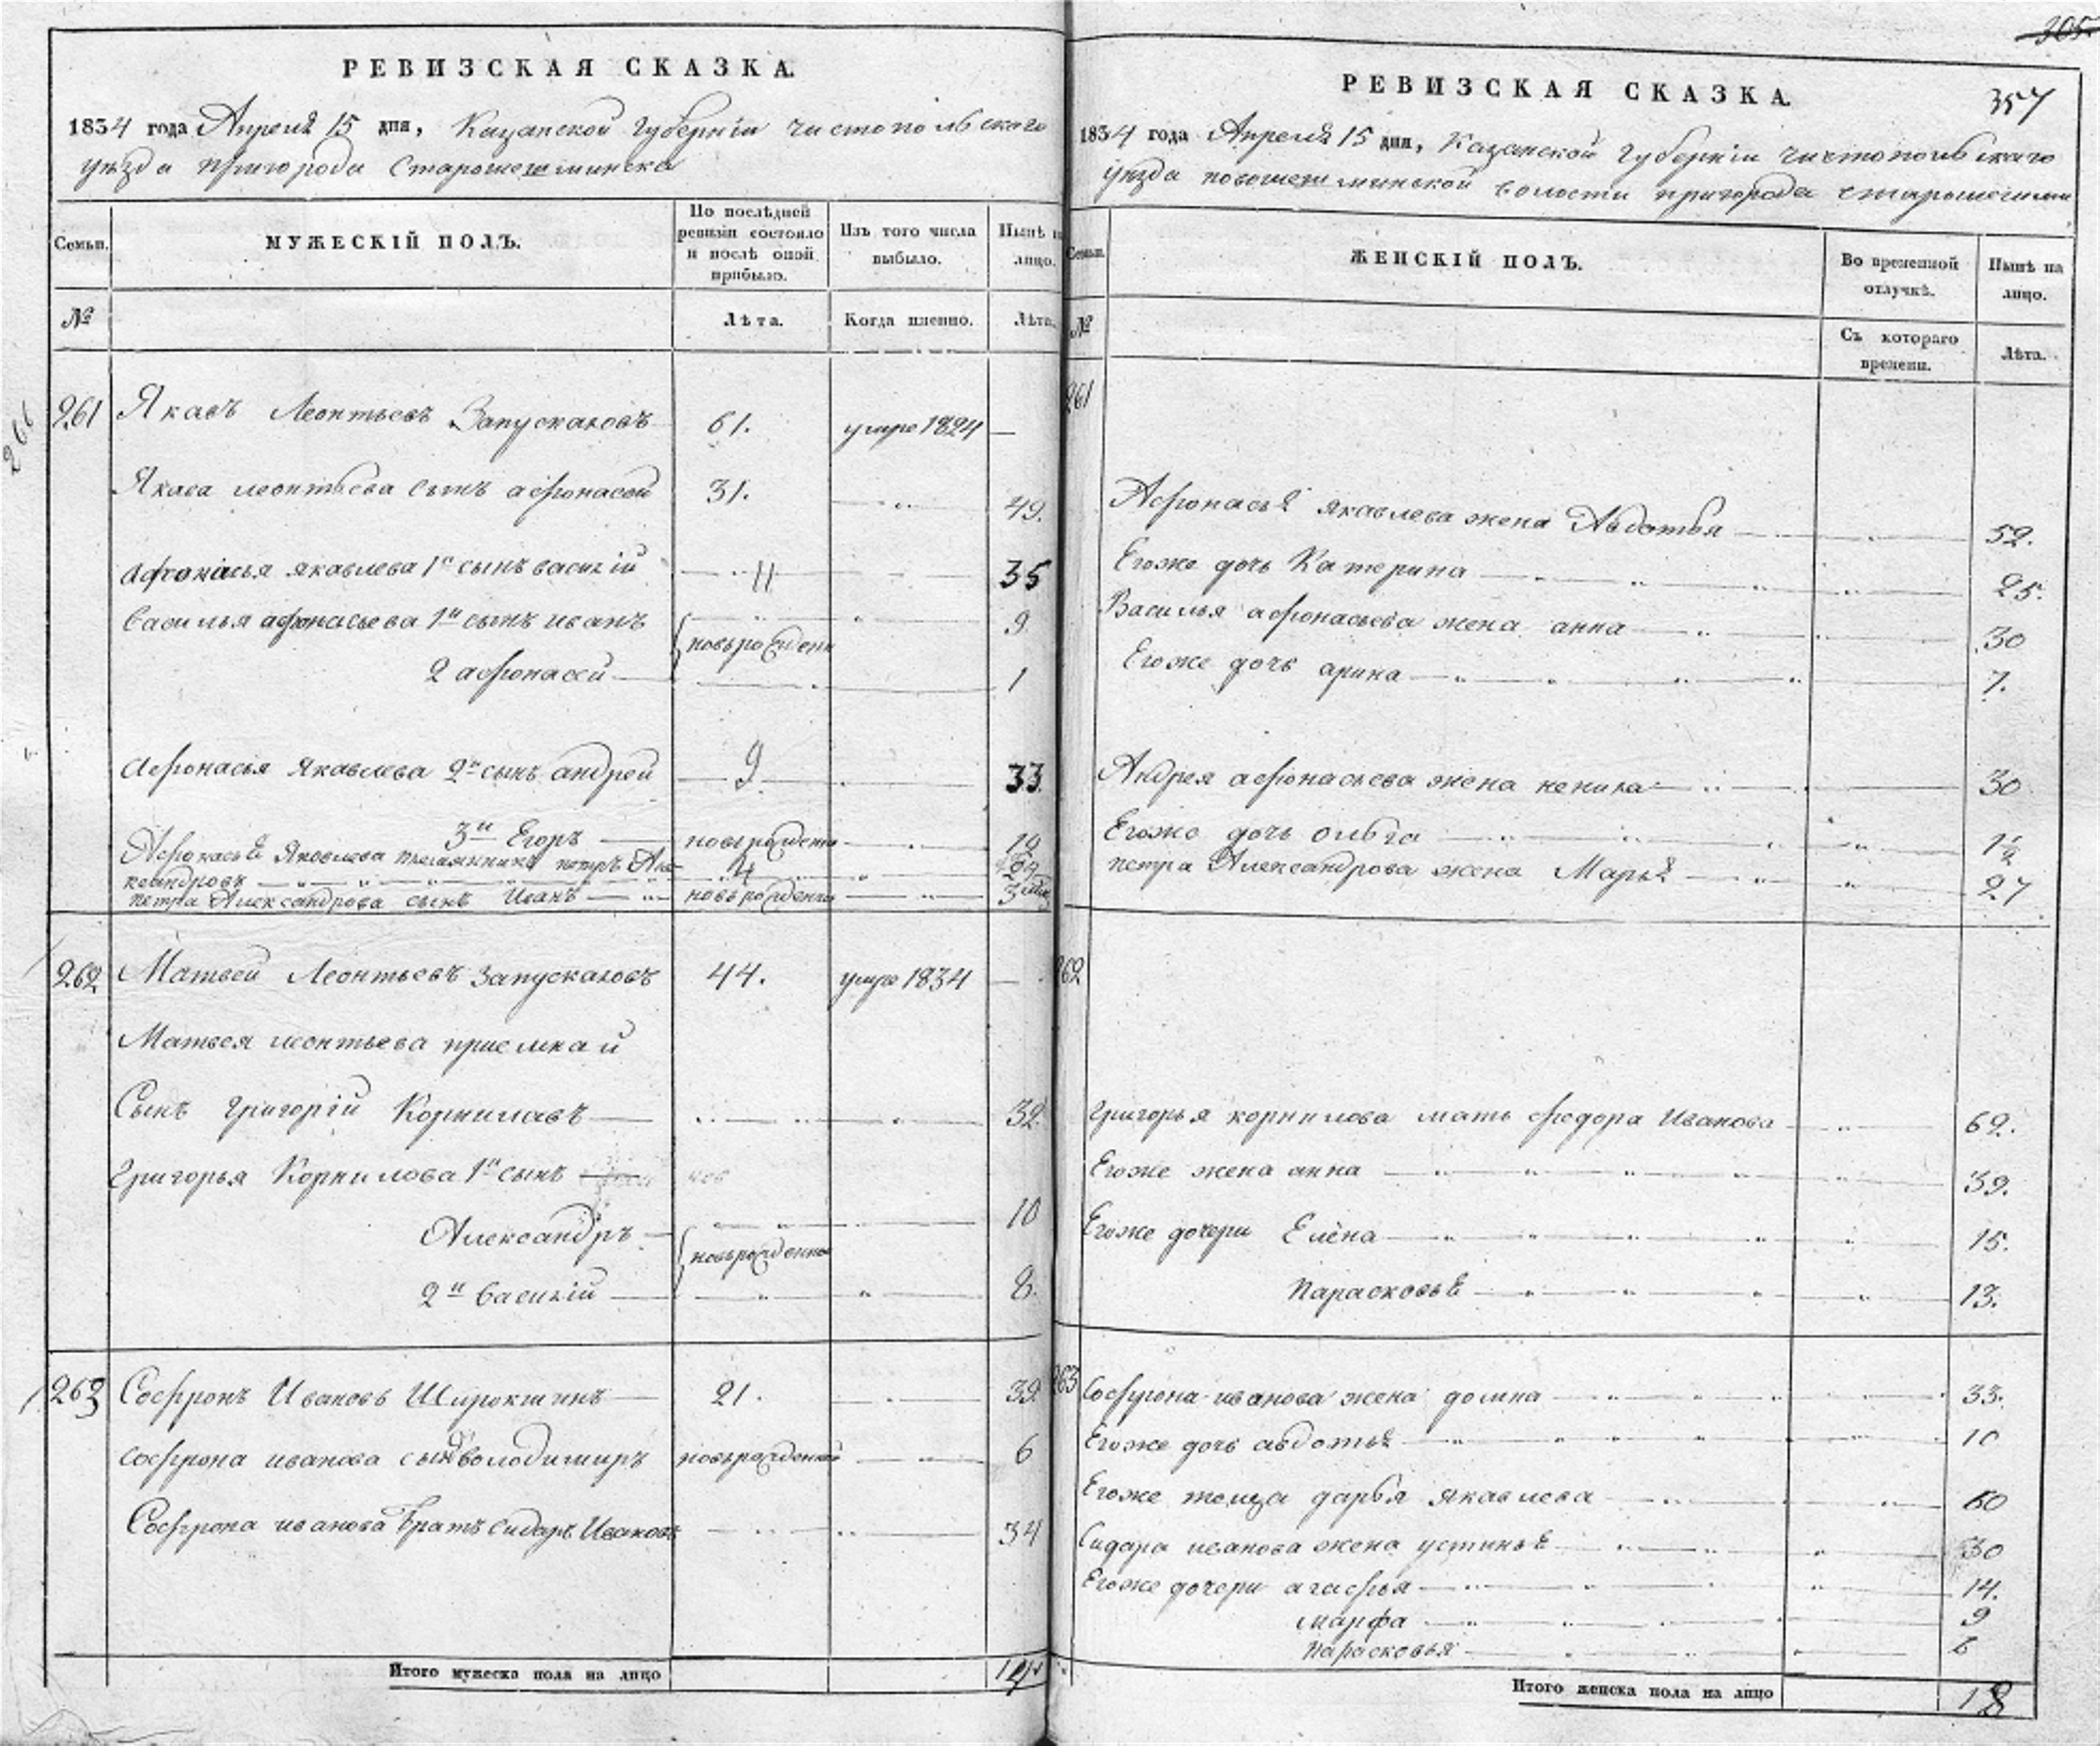 РЕВИЗСКАЯ СКАЗКА.
1834 года Апреля 15 дня, Казанской Губерніи чистопольскаго
уезда пригорода Старошешминска
Семьи.
МУЖЕСКІЙ ПОЛЪ.
По послѣдней ревизіи состояло и послѣ оной прибыло.
Изъ того числа выбыло.
Нынѣ на лицо.
№
Лѣта.
Когда именно.
Лѣта.
266
261 Якавъ Леонтьевъ Запускаловъ 61. умре 1824
Якава леонтьева сынъ афонасей 31. 49.
Афонасья яковлева 1й сынъ василій 11 35
Василья афонасьева 1й сынъ иванъ 9
новърожденн
2 афонасей 1
Афонасья Яковлева 2й сынъ андрей 9 33.
3й Егоръ новърожденн 19
Афонасья Яковлева племянникъ петръ Але
ксандровъ 4
петра Александрова сынъ Иванъ новърожденны 3
262 Матвей Леонтьевъ Запускаловъ 44. умре 1834
Матвея леонтьева приемнай
Сынъ григорій Корнилавъ 32.
Григорья Корнилова 1й сынъ нов
Александръ 10
новърожденно
2й василій 8.
263 Софронъ Ивановъ Широкшинъ 21. 39.
софрона иванова сынъ володимиръ новърожденной 6
Софрона иванова братъ сидаръ Ивановъ 34
Итого мужеска пола на лицо 14
305
357
РЕВИЗСКАЯ СКАЗКА.
1834 года Апреля 15 дня, Казанской Губерніи чистопольскаго
уезда новошешминской волости пригорода старошешмин
Семьи.
ЖЕНСКІЙ ПОЛЪ.
Во временной отлучкѣ.
Нынѣ на лицо.
№
Съ котораго времени.
Лѣта.
261
Афонасья яковлева жена Авдотья 52.
Егоже дочь Катерина 25.
Василья афонасьева жена анна 30
Егоже дочь арина 7.
Андрея афонасьева жена 30
Егоже дочь ольга 1½
петра Александрова жена Марья 27
262
григорья корнилова мать федора Иванова 62.
Егоже жена анна 39.
Егоже дочери Елена 15.
Парасковья 13.
263 Софрона иванова жена домна 33.
Егоже дочь авдотья 10
Егоже теща дарья яковлева 60
Сидара иванова жена устинья 30
Егоже дочери агафья 14.
марфа 9
парасковья 6
Итого женска пола на лицо 18